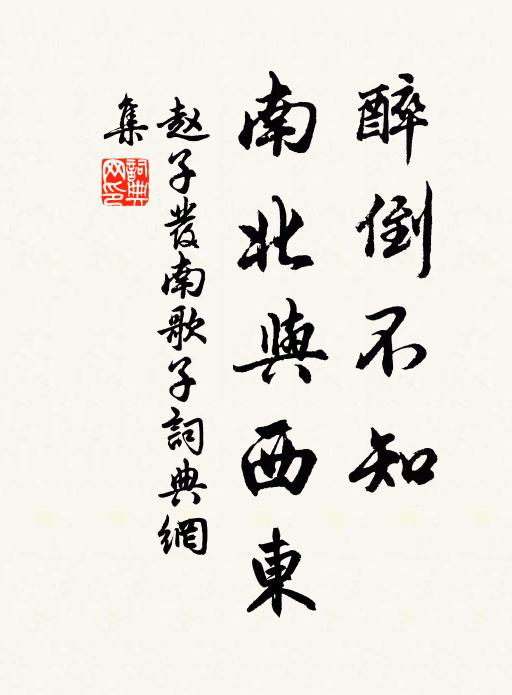 醉倒不知
南北與西東
赵子發南歌子詞典網
集
詞典
网印